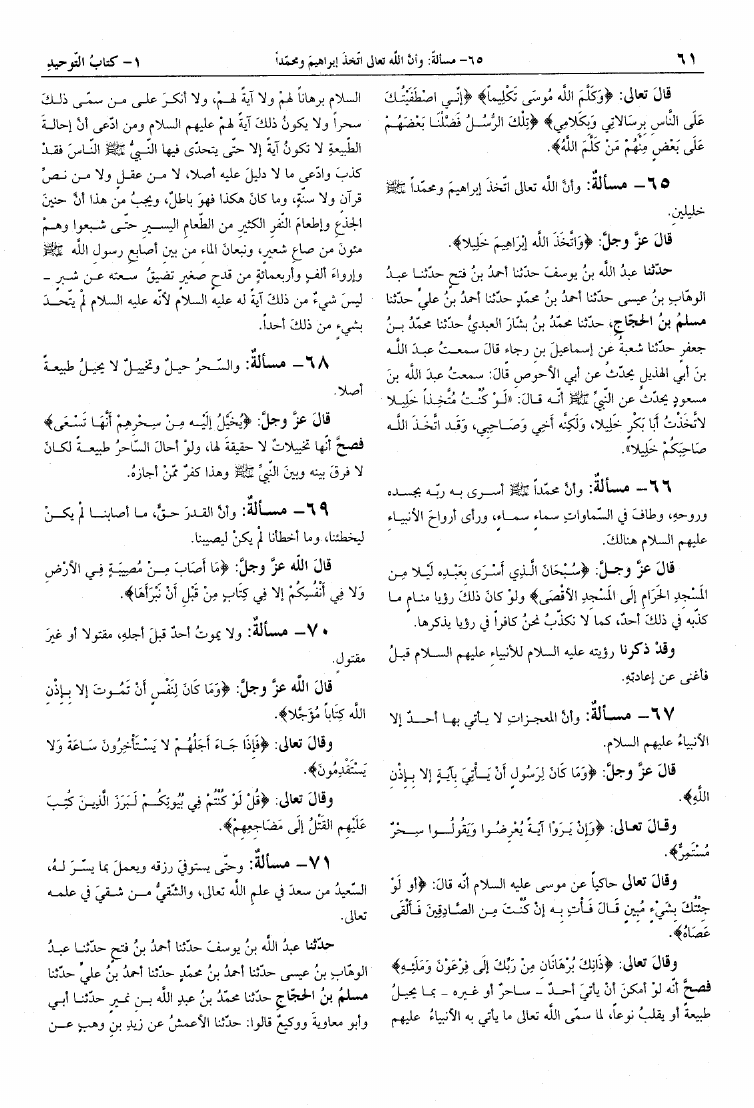 ٦١
٦٥- مسألة: وأنّ الله تعالى اتّخذ إبراهيم ومحمّداً
١- كتابُ التّوحيدِ
قال تعالى: ﴿وَكَلَّمَ اللَّه مُوسَى تَكْلِيماً﴾ ﴿إنّي اصْطَفَيْتُكَ
عَلَى النَّاسِ بِرِسَالاتِي وَبِكَلامِي﴾ ﴿تِلْكَ الرُّسُلُ فَضَّلْنَا بَعْضَهُمْ
عَلَى بَعْضٍ مِنْهُمْ مَنْ كَلَّمَ اللَّهُ﴾.
٦٥- مسألةٌ: وأنَّ الله تعالى اتّخذ إبراهيمَ ومحمّداً ﷺ
خليلينِ.
قال عزّ وجلّ: ﴿وَاتَّخَذَ اللَّه إبْرَاهِيمَ خَلِيلا﴾.
حدّثنا عبدُ اللَّه بنُ يوسفَ حدّثنا أحمدُ بنُ فتحٍ حدّثنا عبدُ
الوهّابِ بنُ عيسى حدّثنا أحمدُ بنُ محمّدٍ حدّثنا أحمدُ بنُ عليٍّ حدّثنا
مسلمُ بنُ الحجّاجِ، حدّثنا محمّدُ بنُ بشّار العبديُّ حدّثنا محمّدُ بنُ
جعفرٍ حدّثنا شعبةُ عن إسماعيلَ بنِ رجاء قالَ سمعتُ عبدَ اللَّه
بنَ أبي الهذيلِ يحدّثُ عن أبي الأحوصِ قالَ: سمعتُ عبدَ اللَّه بنَ
مسعودٍ يحدّثُ عن النّبيِّ ﷺ أنّه قالَ: «لَوْ كُنْتُ مُتَّخِذاً خَلِيلا
لاتَّخَذْتُ أَبَا بَكْرٍ خَلِيلا، وَلَكِنَّه أخِي وَصَاحِبِي، وَقَد اتَّخَذَ اللَّه
صَاحِبَكُمْ خَلِيلا».
٦٦- مسألةٌ: وأنّ محمّداً ﷺ أسرى به ربّه بجسده
وروحهِ، وطافَ في السّماواتِ سماءً سماءً، ورأى أرواحَ الأنبياءِ
عليهم السلام هنالكَ.
قال عزّ وجلّ: ﴿سُبْحَانَ الَّذِي أَسْرَى بِعَبْدِه لَيْلا مِن
المَسْجِدِ الحَرَامِ إلَى المَسْجِدِ الأقْصَى﴾ ولوْ كانَ ذلكَ رؤيا منامٍ ما
كذّبه في ذلكَ أحدٌ، كما لا نكذّبُ نحنُ كافراً في رؤيا يذكرها.
وقدْ ذكرنا رؤيته عليه السلام للأنبياءِ عليهم السلام قبلُ
فأغنى عن إعادتهِ.
٦٧- مسألةٌ: وأنّ المعجزاتِ لا يأتي بها أحدٌ إلا
الأنبياءُ عليهم السلام.
قال عزّ وجلّ: ﴿وَمَا كَانَ لِرَسُولٍ أَنْ يَأْتِيَ بِآيَةٍ إلا بِإِذْنِ
اللَّهِ﴾.
وقال تعالى: ﴿وَإِنْ يَرَوْا آيَةً يُعْرِضُوا وَيَقُولُوا سِحْرٌ
مُسْتَمِرٌّ﴾.
وقال تعالى حاكياً عن موسى عليه السلام أنّه قالَ: ﴿أَو لَوْ
جِئْتُكَ بِشَيْءٍ مُبِينٍ قَالَ فَأْتِ بِه إنْ كُنْتَ مِن الصَّادِقِينَ فَأَلْقَى
عَصَاهُ﴾.
وقال تعالى: ﴿فَذَانِكَ بُرْهَانَانِ مِنْ رَبِّكَ إلَى فِرْعَوْنَ وَمَلَئِهِ﴾
فصحَّ أنّه لوْ أمكنَ أنْ يأتيَ أحدٌ - ساحرٌ أو غيره - بما يحيلُ
طبيعةً أو يقلبُ نوعاً، لما سمّى اللَّه تعالى ما يأتي به الأنبياءُ عليهم
السلام برهاناً لهمْ ولا آيةً لهمْ، ولا أنكرَ على من سمّى ذلكَ
سحراً ولا يكونُ ذلكَ آيةً لهمْ عليهم السلام ومن ادّعى أنّ إحالةَ
الطّبيعةِ لا تكونُ آيةً إلا حتّى يتحدّى فيها النّبيُّ ﷺ النّاسَ فقدْ
كذبَ وادّعى ما لا دليلَ عليه أصلا، لا من عقلٍ ولا من نصِّ
قرآنٍ ولا سنّةٍ، وما كانَ هكذا فهوَ باطلٌ، ويجبُ من هذا أنّ حنينَ
الجذعِ وإطعامَ النّفرِ الكثيرِ من الطّعامِ اليسيرِ حتّى شبعوا وهمْ
مئونَ من صاعِ شعيرٍ، ونبعانَ الماءِ من بينِ أصابعِ رسولِ اللَّه ﷺ
وإرواءَ ألفٍ وأربعمائةٍ من قدحٍ صغيرٍ تضيقُ سعته عن شبرٍ -
ليسَ شيءٌ من ذلكَ آيةً له عليه السلام لأنّه عليه السلام لمْ يتّحدَّ
بشيءٍ من ذلكَ أحداً.
٦٨- مسألةٌ: والسّحرُ حيلٌ وتخييلٌ لا يحيلُ طبيعةً
أصلا.
قال عزّ وجلّ: ﴿يُخَيَّلُ إلَيْه مِنْ سِحْرِهِمْ أنَّهَا تَسْعَى﴾
فصحَّ أنّها تخييلاتٌ لا حقيقةَ لها، ولوْ أحالَ السّاحرُ طبيعةً لكانَ
لا فرقَ بينه وبينَ النّبيِّ ﷺ وهذا كفرٌ ممّنْ أجازهُ.
٦٩- مسألةٌ: وأنّ القدرَ حقٌّ، ما أصابنا لمْ يكنْ
ليخطئنا، وما أخطأنا لمْ يكنْ ليصيبنا.
قال اللَّه عزّ وجلّ: ﴿مَا أَصَابَ مِنْ مُصِيبَةٍ فِي الأرْضِ
وَلا فِي أَنْفُسِكُمْ إلا فِي كِتَابٍ مِنْ قَبْلِ أَنْ نَبْرَأَهَا﴾.
٧٠- مسألةٌ: ولا يموتُ أحدٌ قبلَ أجلهِ، مقتولا أو غيرَ
مقتولٍ.
قال اللَّه عزّ وجلّ: ﴿وَمَا كَانَ لِنَفْسٍ أَنْ تَمُوتَ إلا بِإِذْنِ
اللَّه كِتَاباً مُؤَجَّلا﴾.
وقال تعالى: ﴿فَإِذَا جَاءَ أَجَلُهُمْ لا يَسْتَأْخِرُونَ سَاعَةً وَلا
يَسْتَقْدِمُونَ﴾.
وقال تعالى: ﴿قُلْ لَوْ كُنْتُمْ فِي بُيُوتِكُمْ لَبَرَزَ الَّذِينَ كُتِبَ
عَلَيْهِم القَتْلُ إلَى مَضَاجِعِهِمْ﴾.
٧١- مسألةٌ: وحتّى يستوفيَ رزقه ويعملَ بما يسّرَ لهُ،
السّعيدُ من سعدَ في علمِ اللَّه تعالى، والشّقيُّ من شقيَ في علمه
تعالى.
حدّثنا عبدُ اللَّه بنُ يوسفَ حدّثنا أحمدُ بنُ فتحٍ حدّثنا عبدُ
الوهّابِ بنُ عيسى حدّثنا أحمدُ بنُ محمّدٍ حدّثنا أحمدُ بنُ عليٍّ حدّثنا
مسلمُ بنُ الحجّاجِ حدّثنا محمّدُ بنُ عبدِ اللَّه بنِ نميرٍ حدّثنا أبي
وأبو معاويةَ ووكيعٌ قالوا: حدّثنا الأعمشُ عن زيدِ بنِ وهبٍ عن